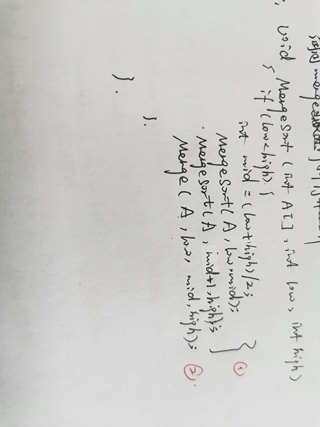 void MergeSort (int A[], int low, int high)
{ if (low<high) {
int mid = (low+high)/2;
MergeSort(A, low, mid);
MergeSort(A, mid+1, high); } ①
Merge(A, low, mid, high); ②
}.
}.